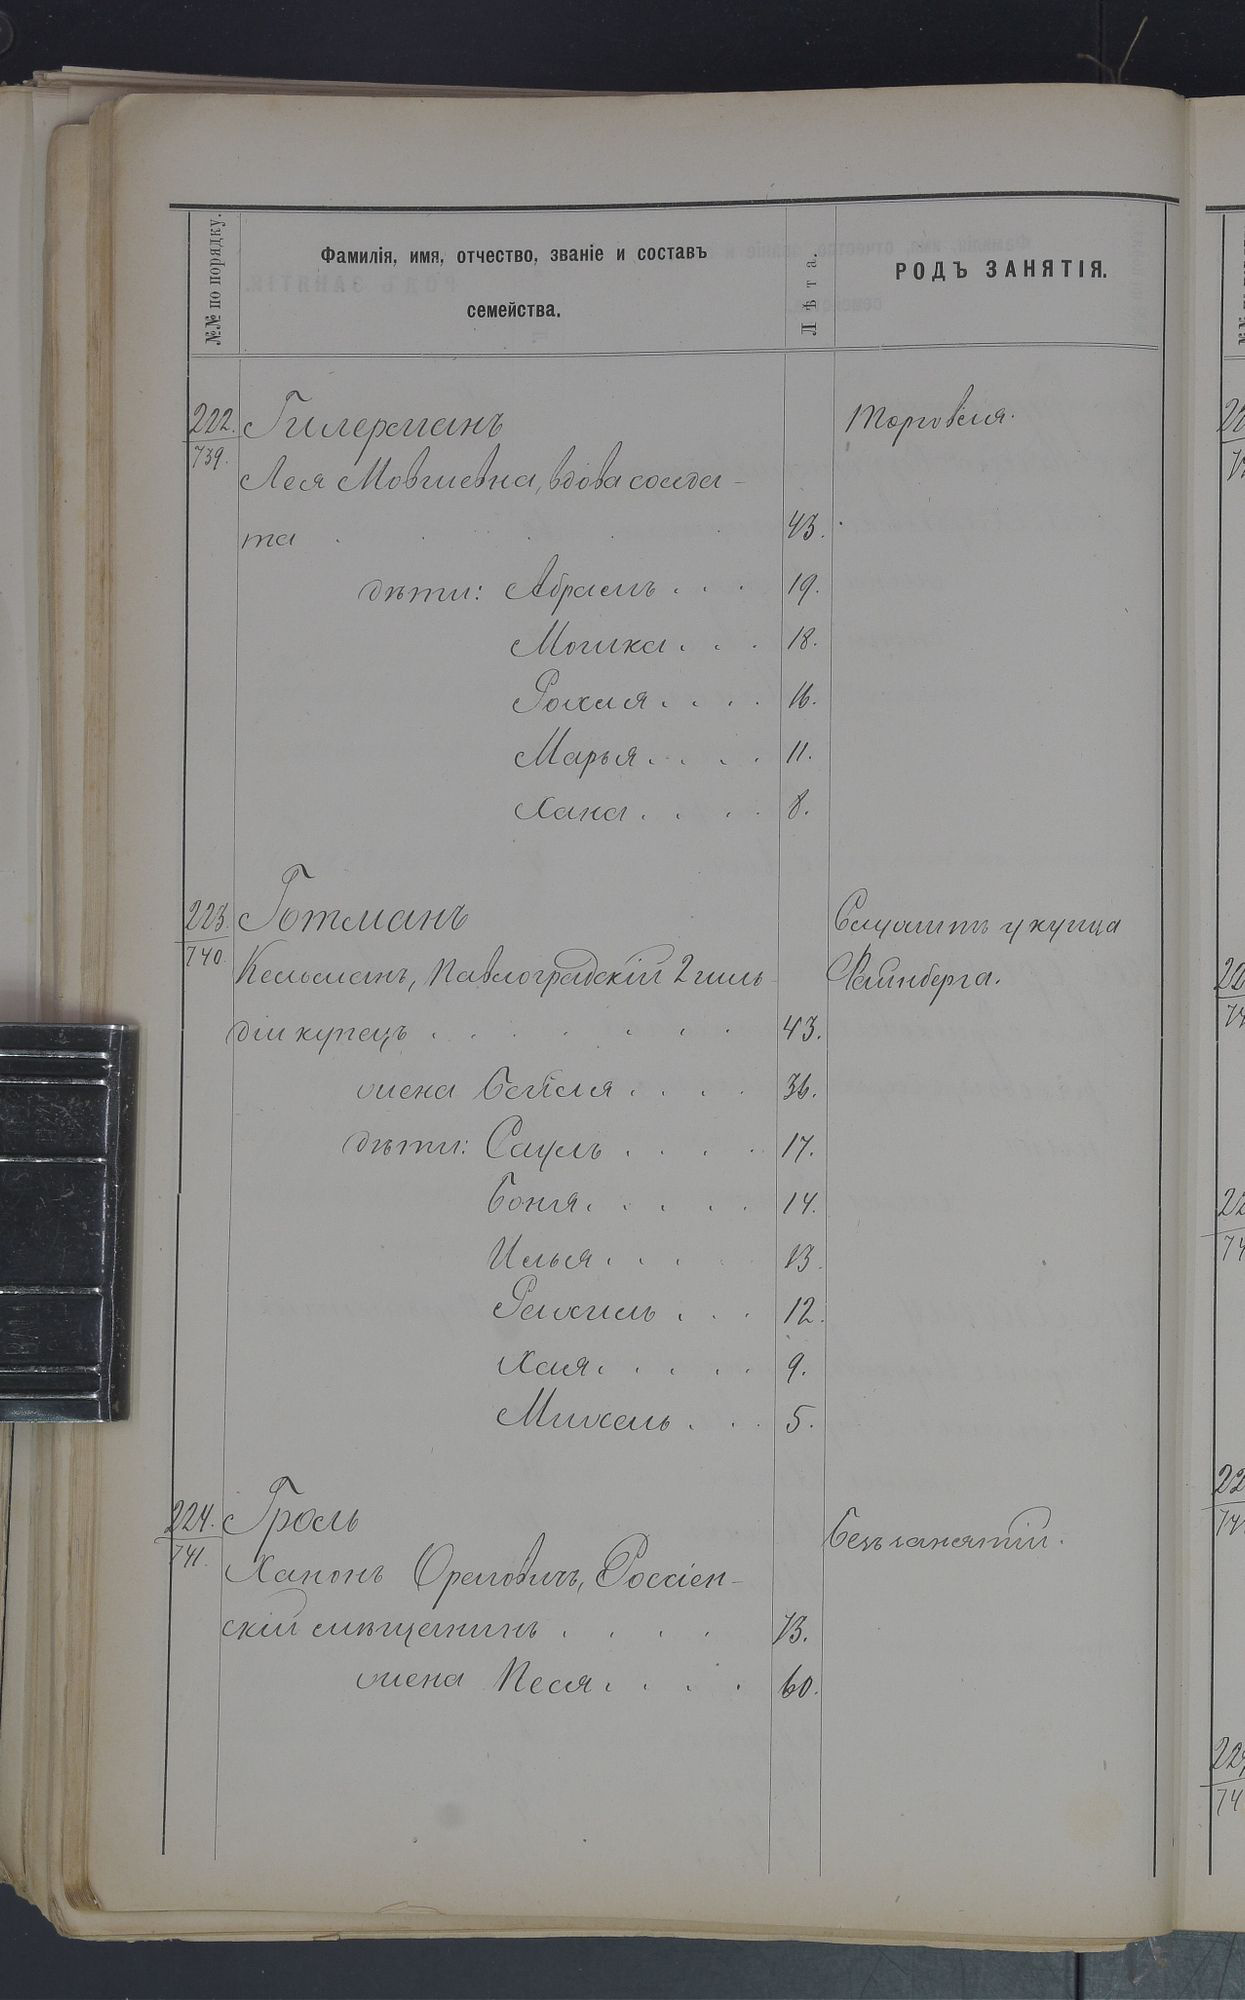 №№ по порядку.
Фамилія, имя, отчество, званіе и составъ
семейства.
Лѣта.
РОДЪ ЗАНЯТІЯ.
222. Гилерманъ Торговля.
739.
Лея Мовшевна, вдова солда-
та 43.
дѣти: Абрамъ 19.
Мошка 18.
Рохля 16.
Марья 11.
Хана 8.
223. Готманъ Служитъ у купца
740.
Кельманъ, Павлоградскій 2 гиль- Фейнберга.
діи купецъ 43.
жена Бейля 36.
дѣти: Саулъ 17.
Боня 14.
Илья 13.
Рахиль 12.
Хая 9.
Михель 5.
224. Гроль Безъ занятій.
741.
Ханонъ Орелович, Россіен-
скій мѣщанинъ 73.
жена Песя 60.